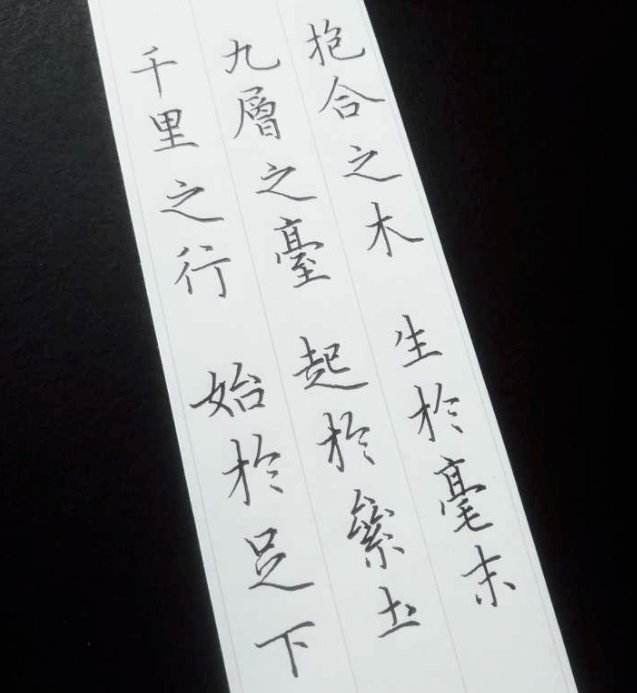 抱合之木 生於毫末
九層之臺 起於絫圡
千里之行 始於足下